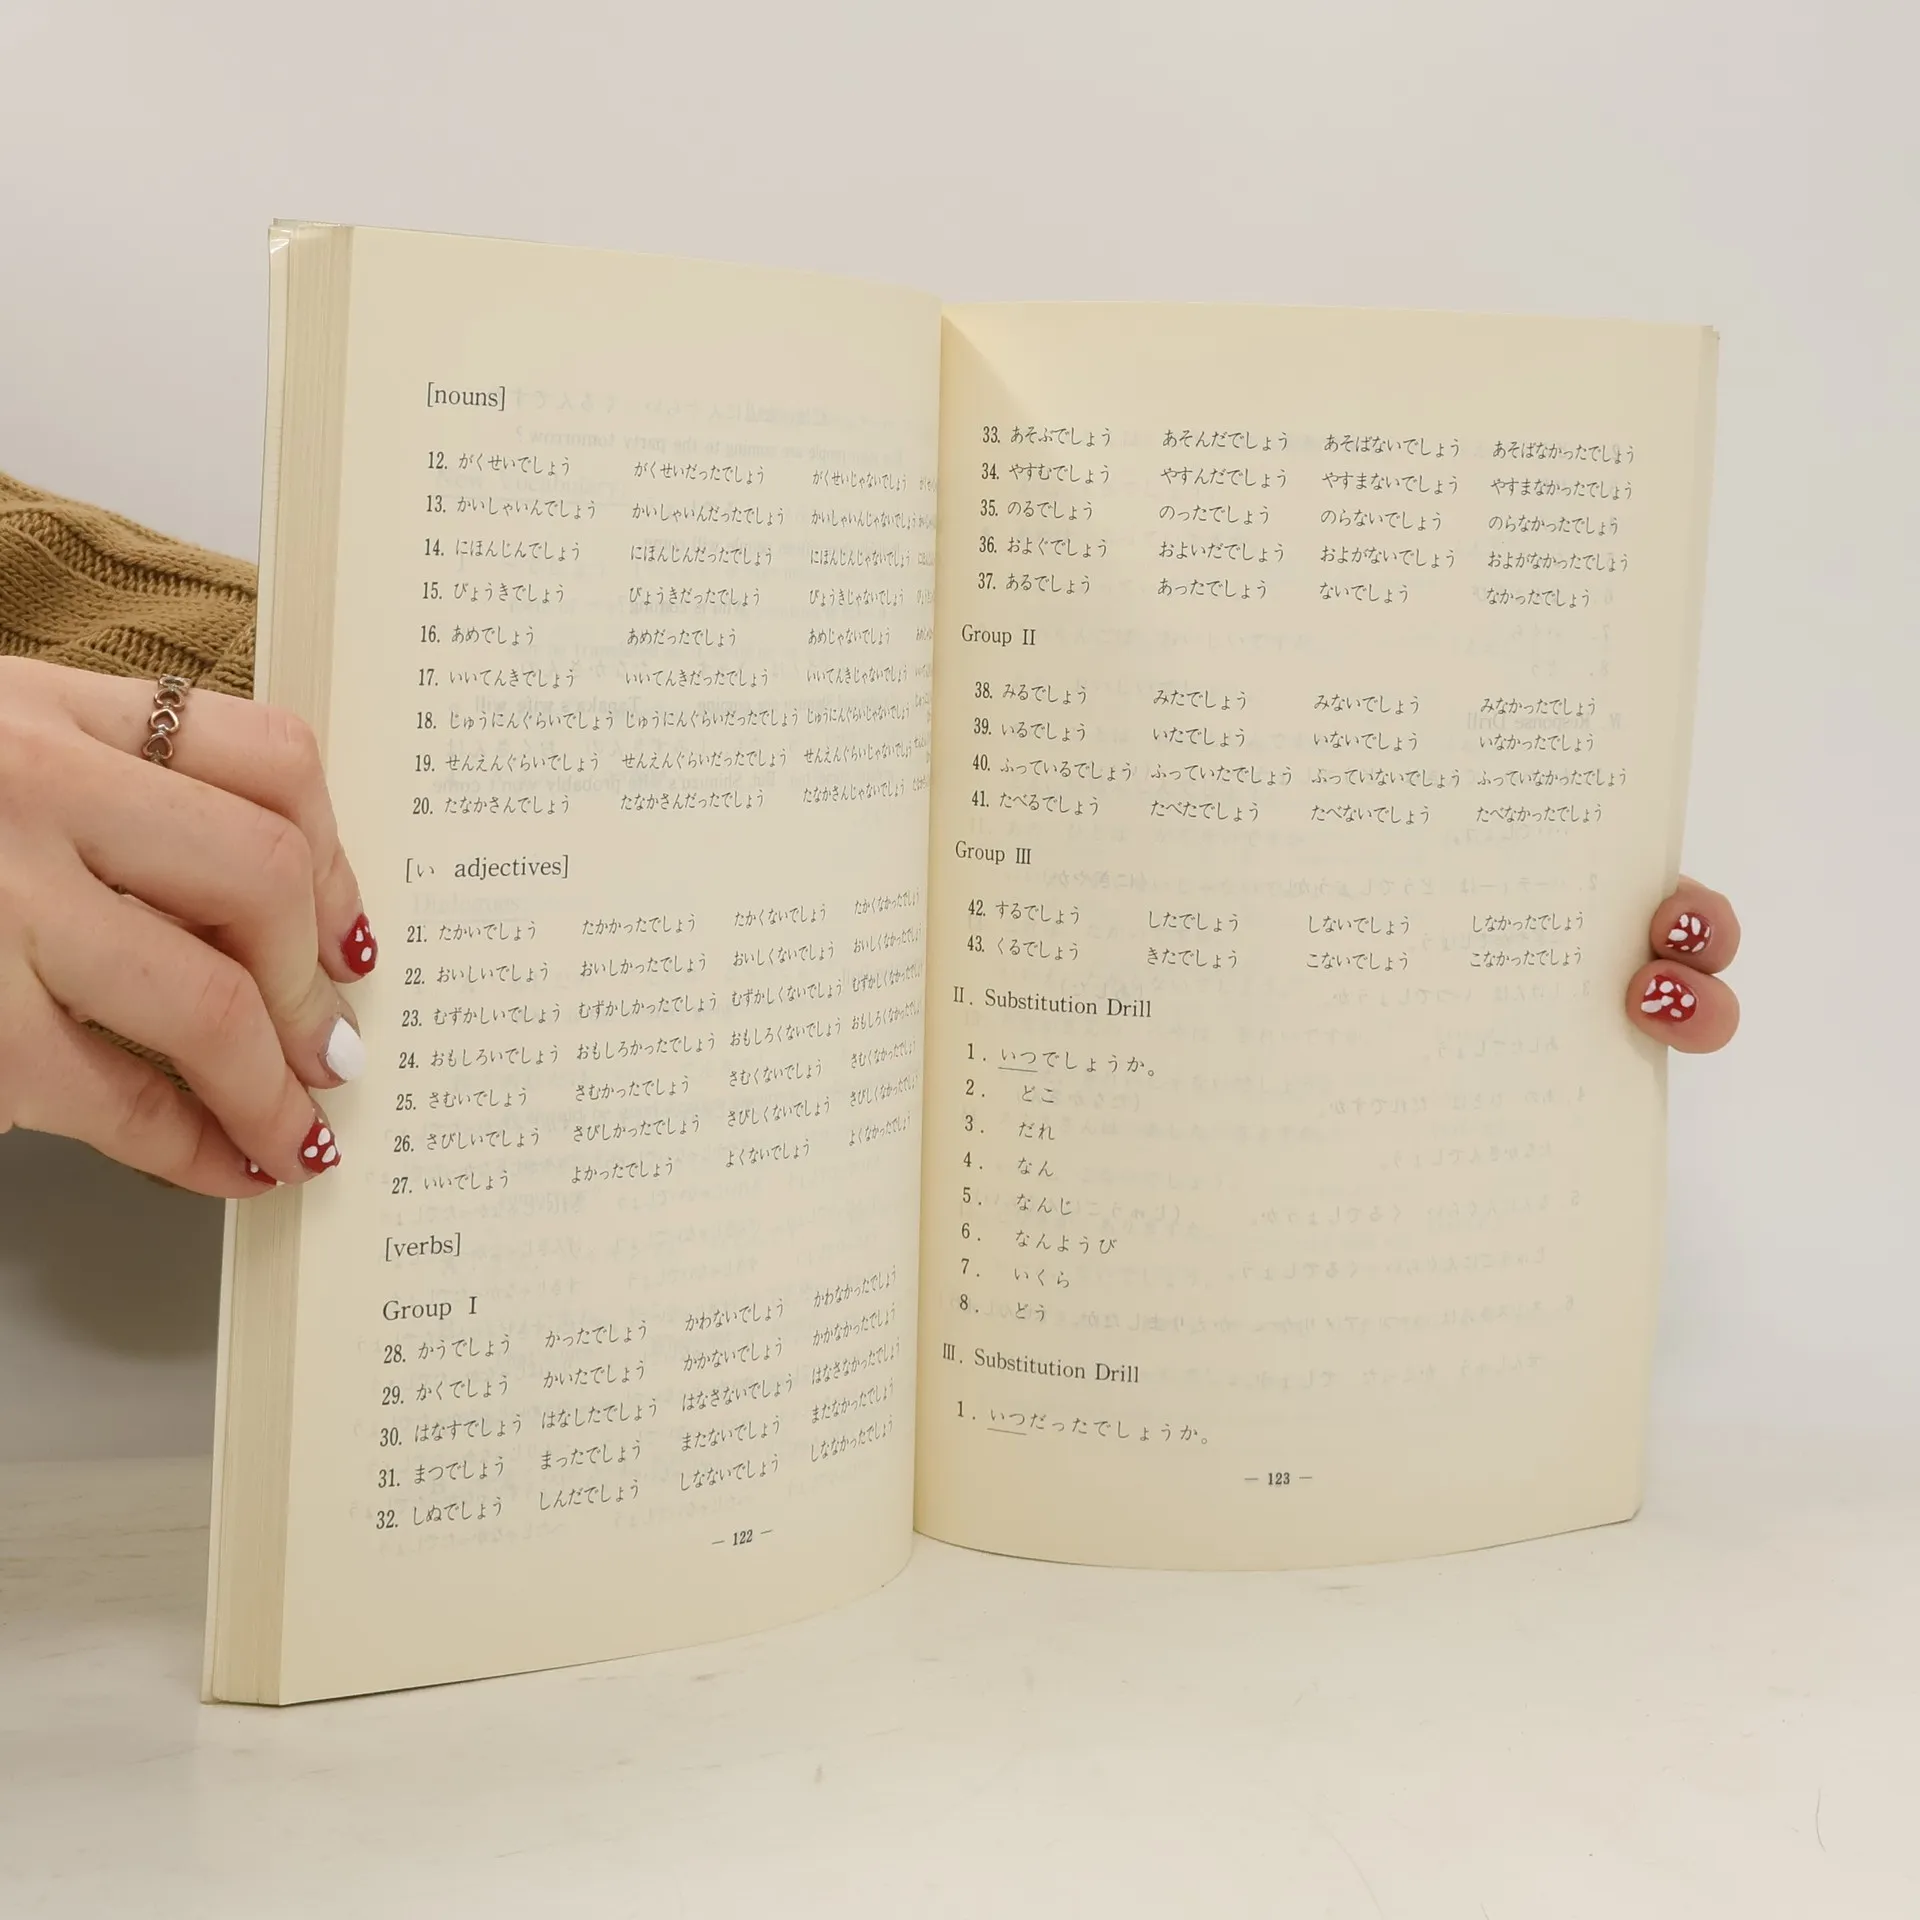 [nouns]
12. がくせいでしょう がくせいだったでしょう がくせいじゃないでしょう
13. かいしゃいんでしょう かいしゃいんだったでしょう かいしゃいんじゃないでしょう
14. にほんじんでしょう にほんじんだったでしょう にほんじんじゃないでしょう
15. びょうきでしょう びょうきだったでしょう びょうきじゃないでしょう
16. あめでしょう あめだったでしょう あめじゃないでしょう
17. いいてんきでしょう いいてんきだったでしょう いいてんきじゃないでしょう
18. じゅうにんぐらいでしょう じゅうにんぐらいだったでしょう じゅうにんぐらいじゃないでしょう
19. せんえんぐらいでしょう せんえんぐらいだったでしょう せんえんぐらいじゃないでしょう
20. たなかさんでしょう たなかさんだったでしょう たなかさんじゃないでしょう
[い adjectives]
21. たかいでしょう たかかったでしょう たかくないでしょう たかくなかったでしょう
22. おいしいでしょう おいしかったでしょう おいしくないでしょう おいしくなかったでしょう
23. むずかしいでしょう むずかしかったでしょう むずかしくないでしょう むずかしくなかったでしょう
24. おもしろいでしょう おもしろかったでしょう おもしろくないでしょう おもしろくなかったでしょう
25. さむいでしょう さむかったでしょう さむくないでしょう さむくなかったでしょう
26. さびしいでしょう さびしかったでしょう さびしくないでしょう さびしくなかったでしょう
27. いいでしょう よかったでしょう よくないでしょう よくなかったでしょう
[verbs]
Group Ⅰ
28. かうでしょう かったでしょう かわないでしょう かわなかったでしょう
29. かくでしょう かいたでしょう かかないでしょう かかなかったでしょう
30. はなすでしょう はなしたでしょう はなさないでしょう はなさなかったでしょう
31. まつでしょう まったでしょう またないでしょう またなかったでしょう
32. しぬでしょう しんだでしょう しなないでしょう しななかったでしょう
— 122 —
33. あそぶでしょう あそんだでしょう あそばないでしょう あそばなかったでしょう
34. やすむでしょう やすんだでしょう やすまないでしょう やすまなかったでしょう
35. のるでしょう のったでしょう のらないでしょう のらなかったでしょう
36. およぐでしょう およいだでしょう およがないでしょう およがなかったでしょう
37. あるでしょう あったでしょう ないでしょう なかったでしょう
Group Ⅱ
38. みるでしょう みたでしょう みないでしょう みなかったでしょう
39. いるでしょう いたでしょう いないでしょう いなかったでしょう
40. ふっているでしょう ふっていたでしょう ふっていないでしょう ふっていなかったでしょう
41. たべるでしょう たべたでしょう たべないでしょう たべなかったでしょう
Group Ⅲ
42. するでしょう したでしょう しないでしょう しなかったでしょう
43. くるでしょう きたでしょう こないでしょう こなかったでしょう
Ⅱ. Substitution Drill
1. いつでしょうか。
2. どこ
3. だれ
4. なん
5. なんじ
6. なんようび
7. いくら
8. どう
Ⅲ. Substitution Drill
1. いつだったでしょうか。
— 123 —